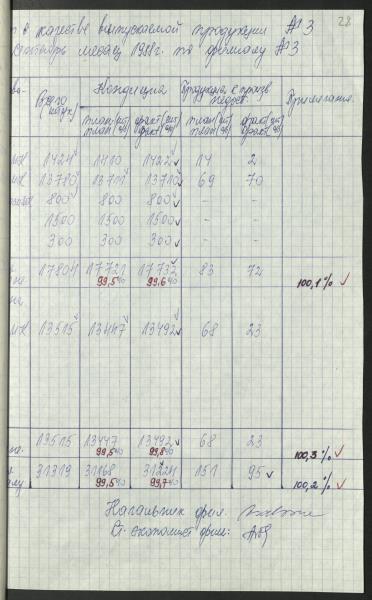 28
о качестве выпускаемой продукции №3
месяц 1988г. по филиалу №3
Всего (штук) Кондиция Продукция с произв. недост. Примечания.
план(шт) факт(шт) план(шт) факт(шт)
план(%) факт(%) план(%) факт(%)
1424 1410 1422 14 2
13780 13711 13710 69 70
800 800 800 - -
1500 1500 1500 - -
300 300 300 - -
17804 17721 17732 83 72
99,5% 99,6% 100,1%
13515 13447 13492 68 23
13515 13447 13492 68 23
99,5% 99,8% 100,3%
31319 31168 31224 151 95
99,5% 99,7% 100,2%
Начальник фил.
Ст. экономист фил: